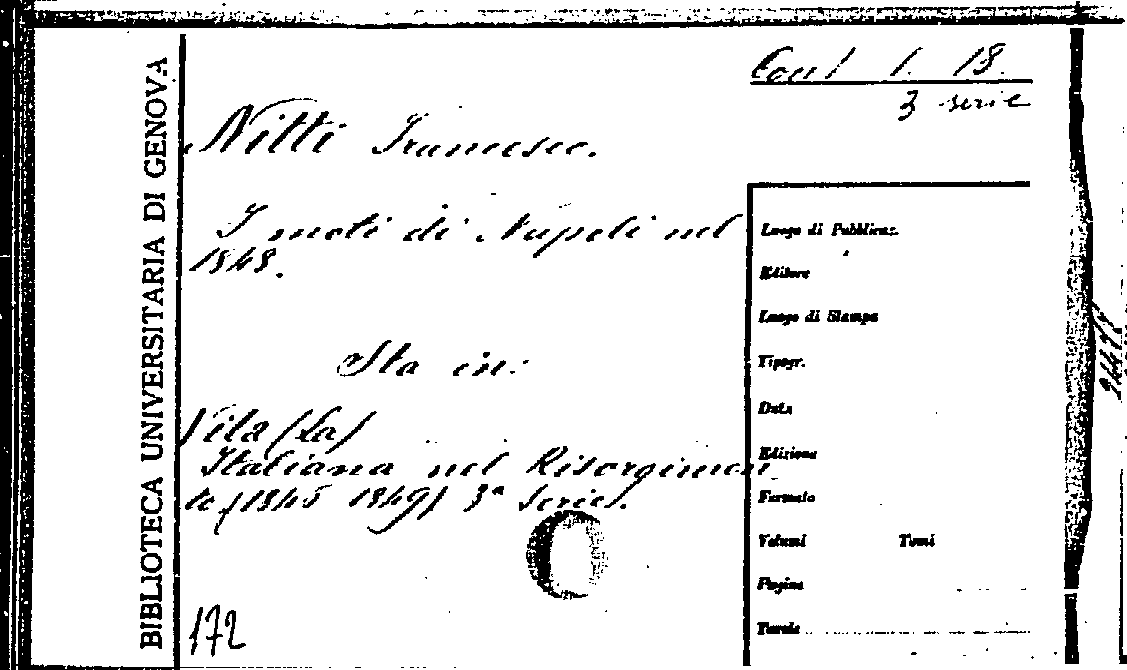 BIBLIOTECA UNIVERSITARIA DI GENOVA
1. 18.
3 serie
Nitti Francesco.
I moti di Napoli nel
1848.
Sta in:
Vita (La)
Italiana nel Risorgimen
to (1845 1849) 3ª Serie.
172
Luogo di Pubblicaz.
Editore
Luogo di Stampa
Tipogr.
Data
Edizione
Formato
Volumi Tomi
Pagine
Tavole